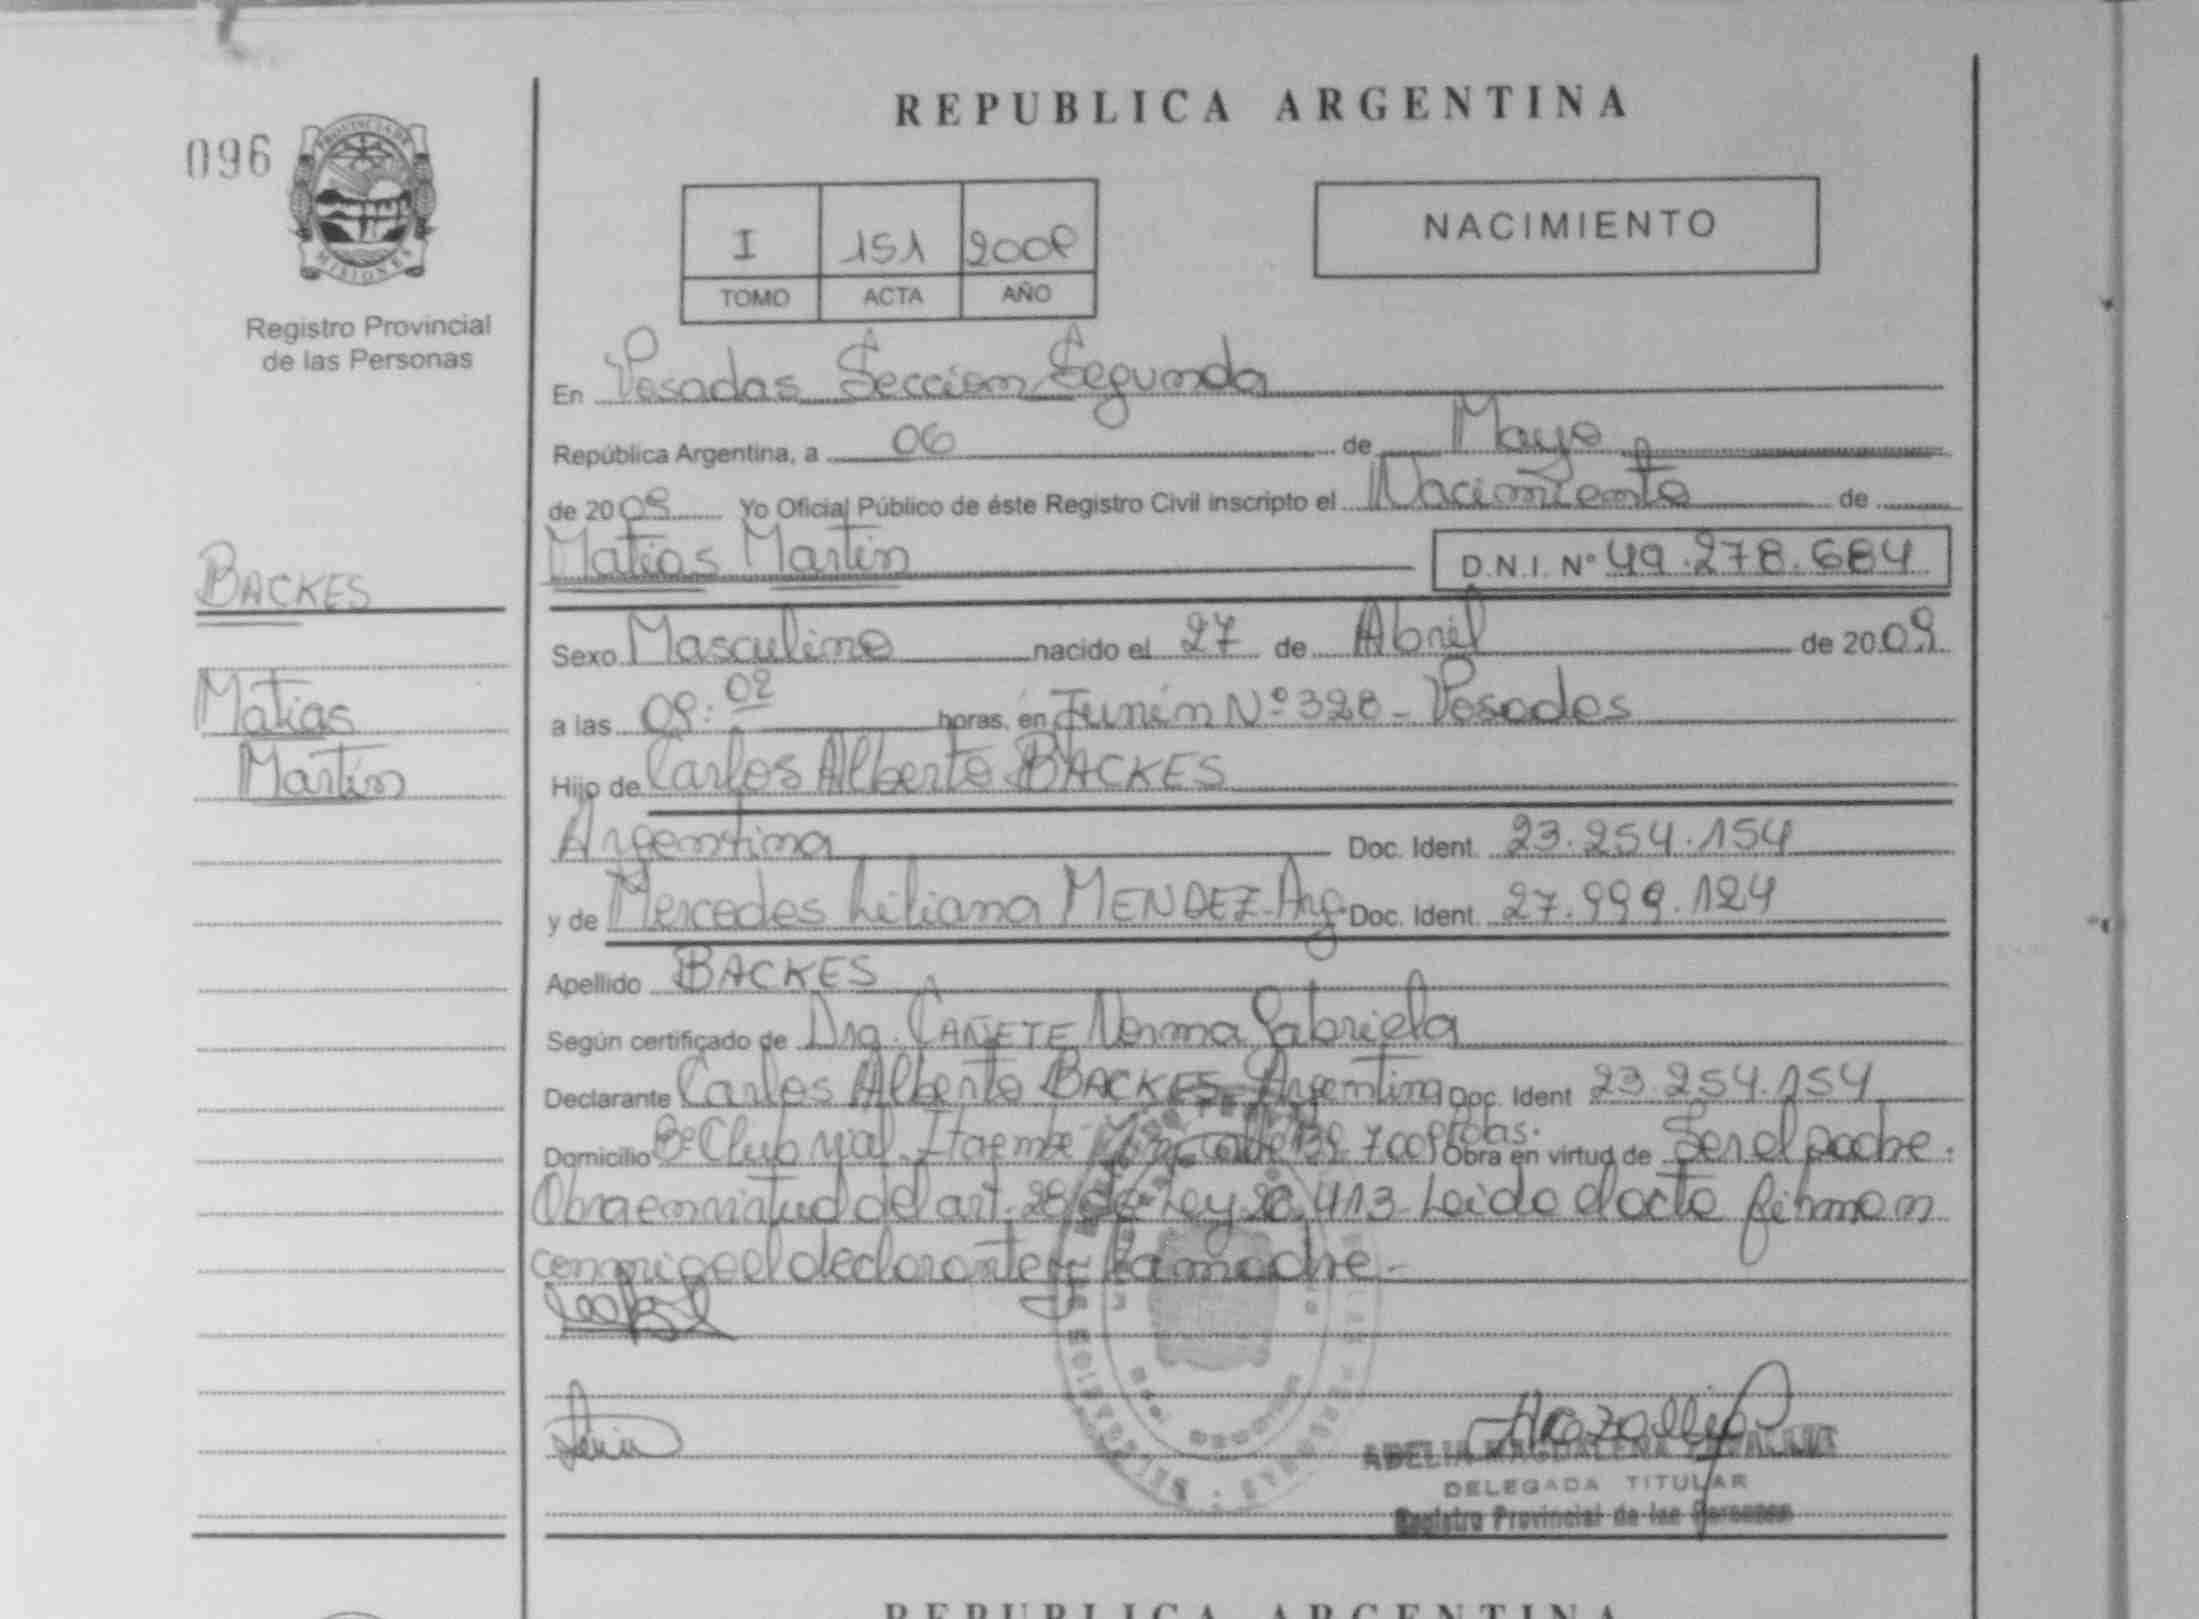 REPUBLICA ARGENTINA
096
PROVINCIA DE
MISIONES
Registro Provincial
de las Personas
I 151 2009
TOMO ACTA AÑO
NACIMIENTO
En Posadas Seccion Segunda
República Argentina, a 06 de Mayo
de 2009 Yo Oficial Público de éste Registro Civil inscripto el Nacimiento de
Matias Martin D.N.I. Nº 49.278.684
BACKES
Sexo Masculino nacido el 27 de Abril de 2009
Matias
a las 09:02 horas, en Junín Nº 328 - Posadas
Martin
Hijo de Carlos Alberto BACKES
Argentina Doc. Ident. 23.254.154
y de Mercedes Liliana MENDEZ - Arg. Doc. Ident. 27.999.124
Apellido BACKES
Según certificado de Dra. CAÑETE Norma Gabriela
Declarante Carlos Alberto BACKES - Argentina Doc. Ident 23.254.154
Domicilio Bº Club vial - Itaembe Pdas. Obra en virtud de Ser el padre.
Obra en virtud del art. 28 de Ley 413 - Leido el acta firman
conmigo el declarante y la madre.-
DELEGADA TITULAR
Registro Provincial de las Personas
REPUBLICA ARGENTINA